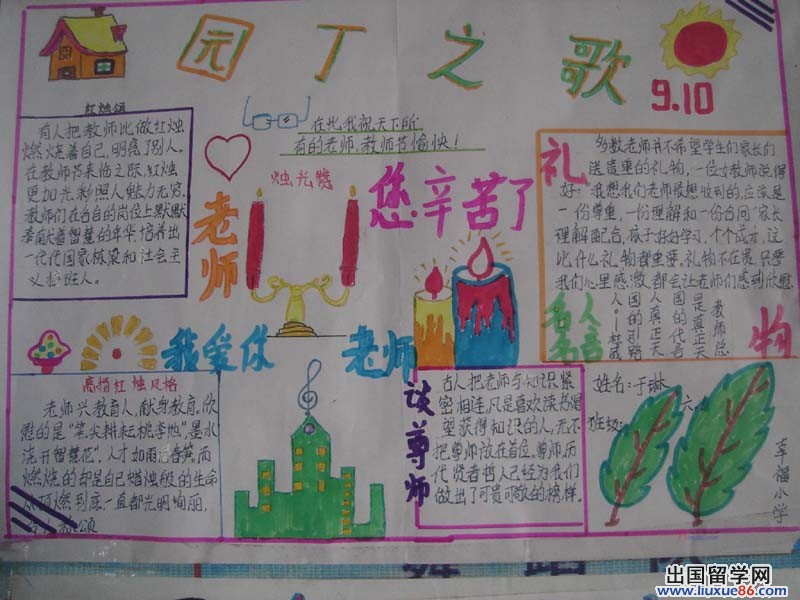 园丁之歌
9.10
红烛颂
有人把教师比做红烛
燃烧着自己,明亮了别人。
在教师节来临之际,红烛
更加光彩照人魅力无穷。
教师们在各自的岗位上默默
奉献着智慧的年华,培养出
一代代国家栋梁和社会主
义接班人。
在此,我祝天下所
有的老师,教师节愉快!
烛光赞
老师
您辛苦了
礼
多数老师并不希望学生们家长们
送贵重的礼物,一位女教师说得
好:"我想我们老师最想收到的,应该是
一份尊重,一份理解和一份合同"家长
理解配合,孩子好好学习,个个成才,这
比什么礼物都重要。礼物不在贵,只要
我们心里感激,都会让老师们感到欣慰
物
名人
名言
我爱你
老师
高扬红烛风格
老师兴教育人,献身教育。欣
慰的是"笔尖耕耘桃李地"墨水
浇开智慧花",人才如雨后春笋,而
燃烧的却是自己蜡烛般的生命
从顶燃到底,一直都光明绚丽。
谈尊师
古人把老师与知识紧
密相连,凡是喜欢读书渴
望获得知识的人,无不
把尊师放在首位。尊师历
代贤者哲人已经为我们
做出了可贵可敬的榜样。
姓名:于琳
班级:
幸福小学
出国留学网
www.liuxue86.com